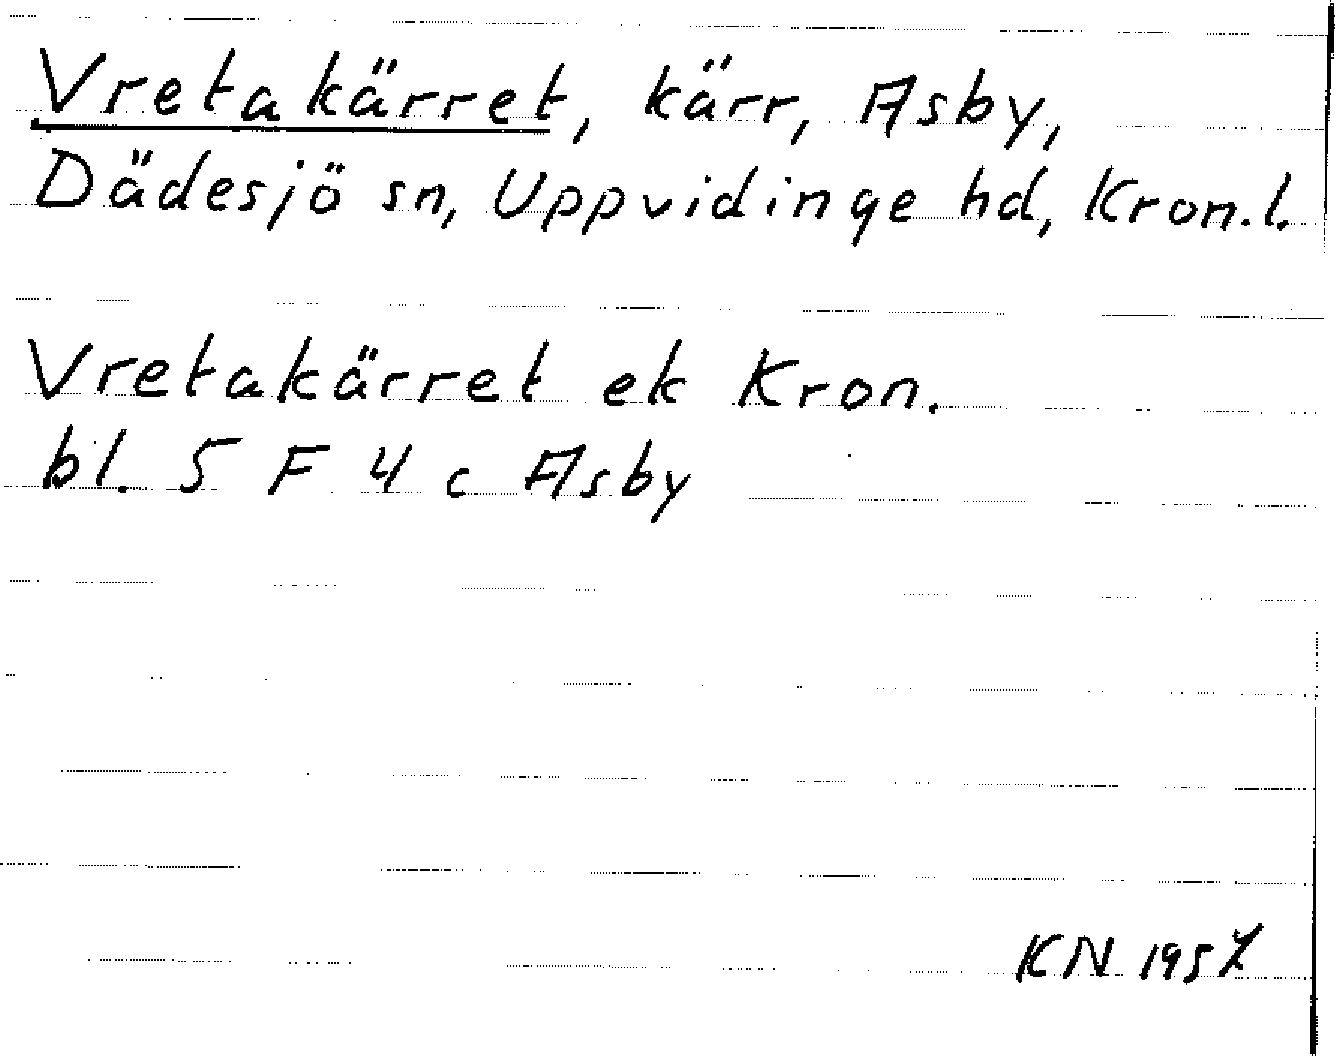 Vretakärret, kärr, Asby,
Dädesjö sn, Uppvidinge hd, Kron.l.
Vretakärret ek Kron.
bl. 5 F 4 c Asby
KN 1957